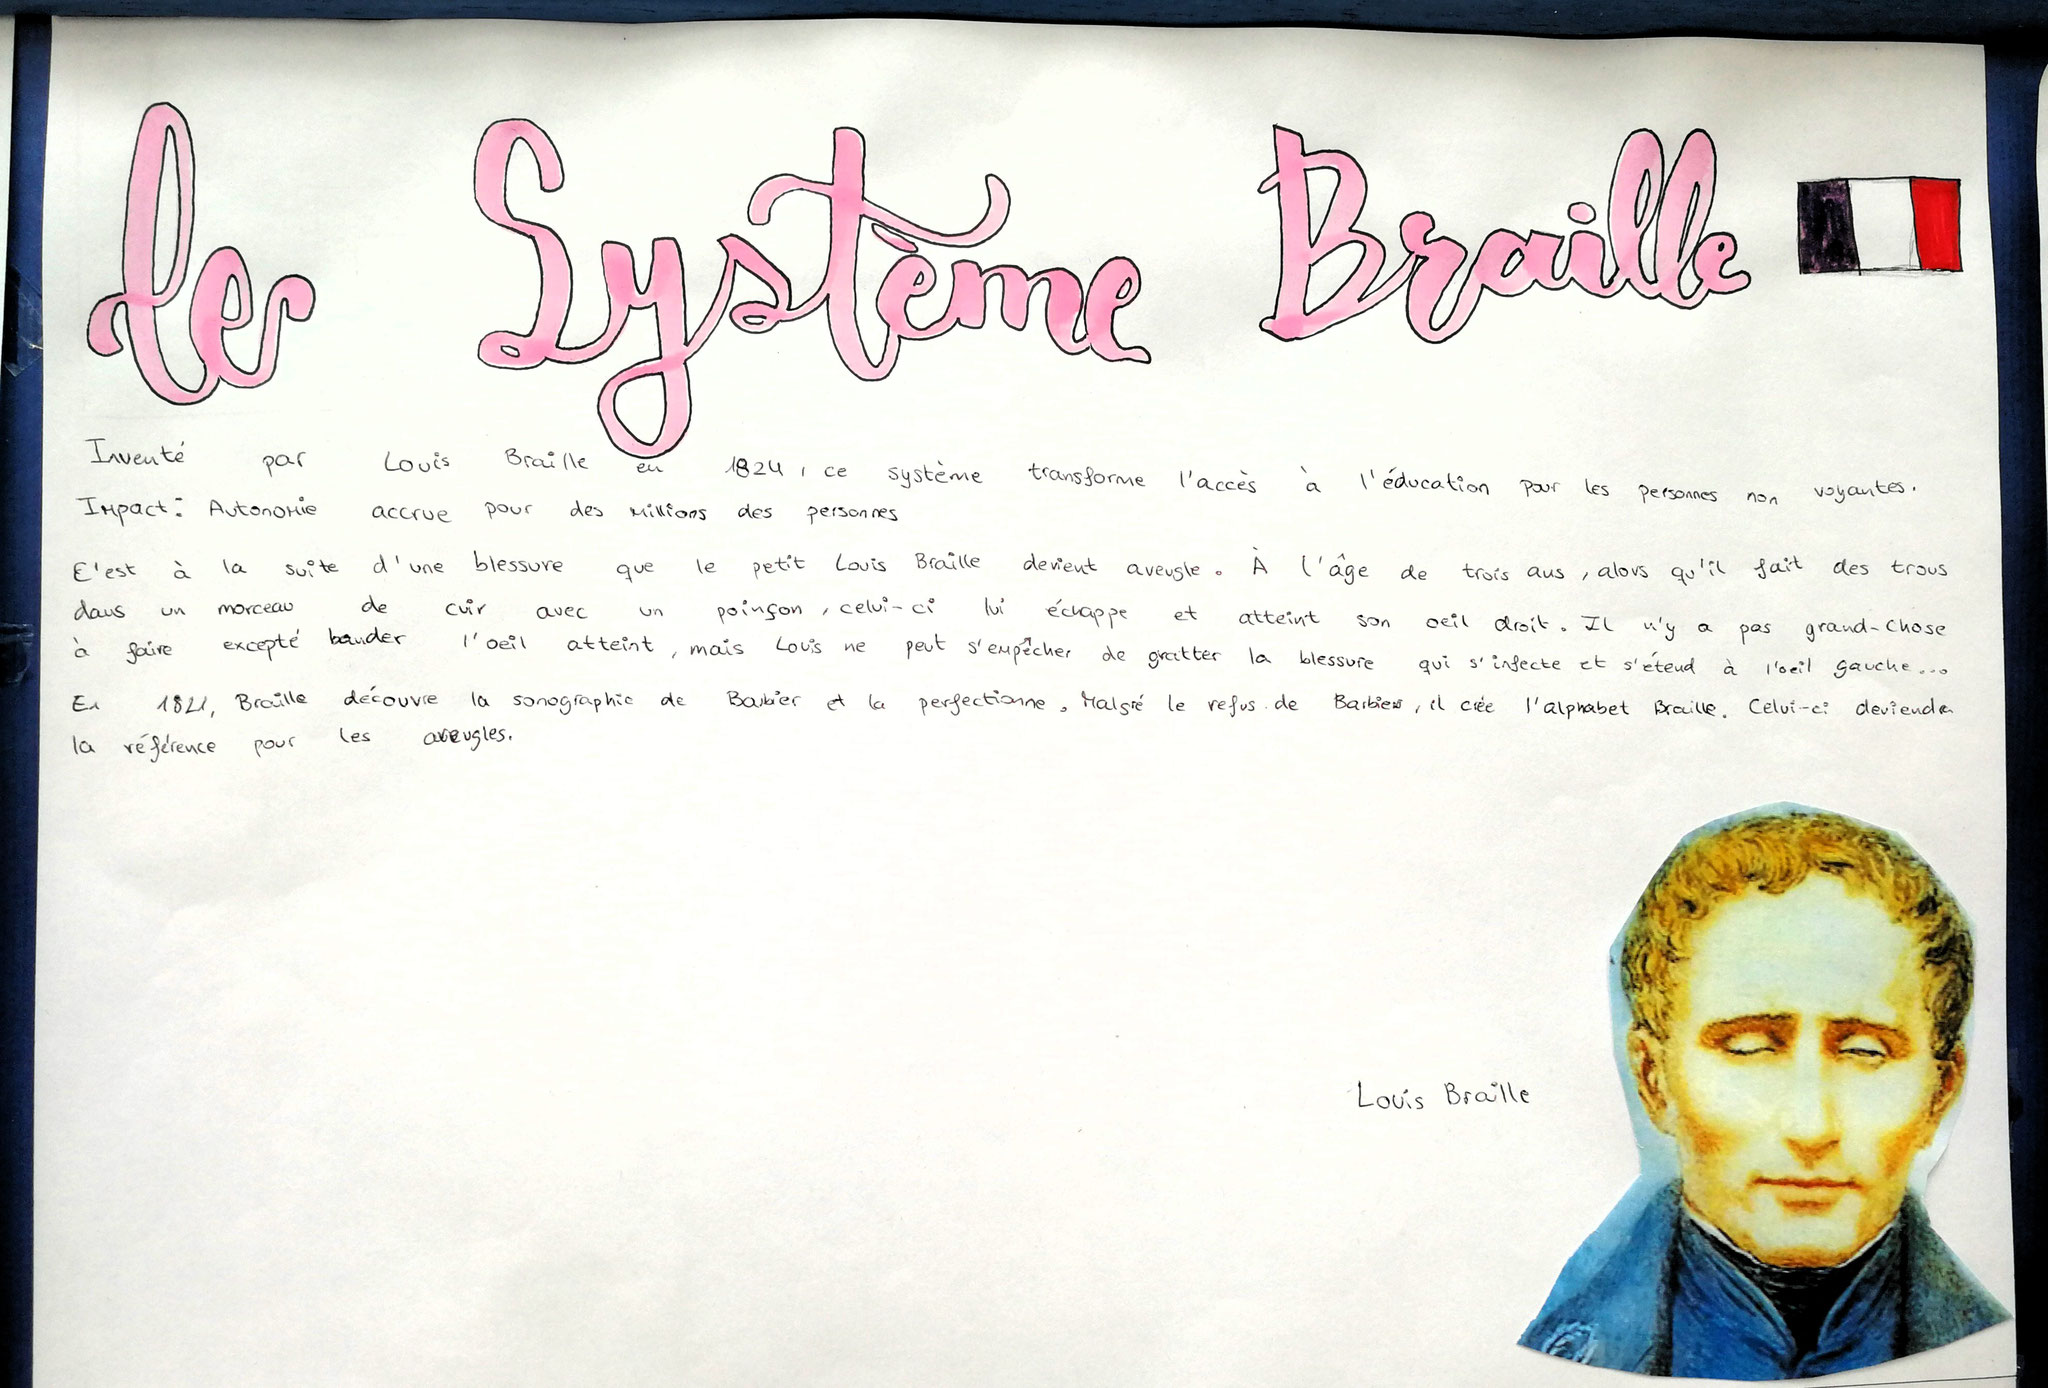 Les Système Braille
Inventé par Louis Braille en 1824, ce système transforme l'accès à l'éducation pour les personnes non voyantes.
Impact: Autonomie accrue pour des millions des personnes
C'est à la suite d'une blessure que le petit Louis Braille devient aveugle. À l'âge de trois ans, alors qu'il fait des trous
dans un morceau de cuir avec un poinçon, celui-ci lui échappe et atteint son oeil droit. Il n'y a pas grand-chose
à faire excepté bander l'oeil atteint, mais Louis ne peut s'empêcher de gratter la blessure qui s'infecte et s'étend à l'oeil gauche...
En 1821, Braille découvre la sonographie de Barbier et la perfectionne. Malgré le refus de Barbier, il crée l'alphabet Braille. Celui-ci deviendra
la référence pour les aveugles.
Louis Braille